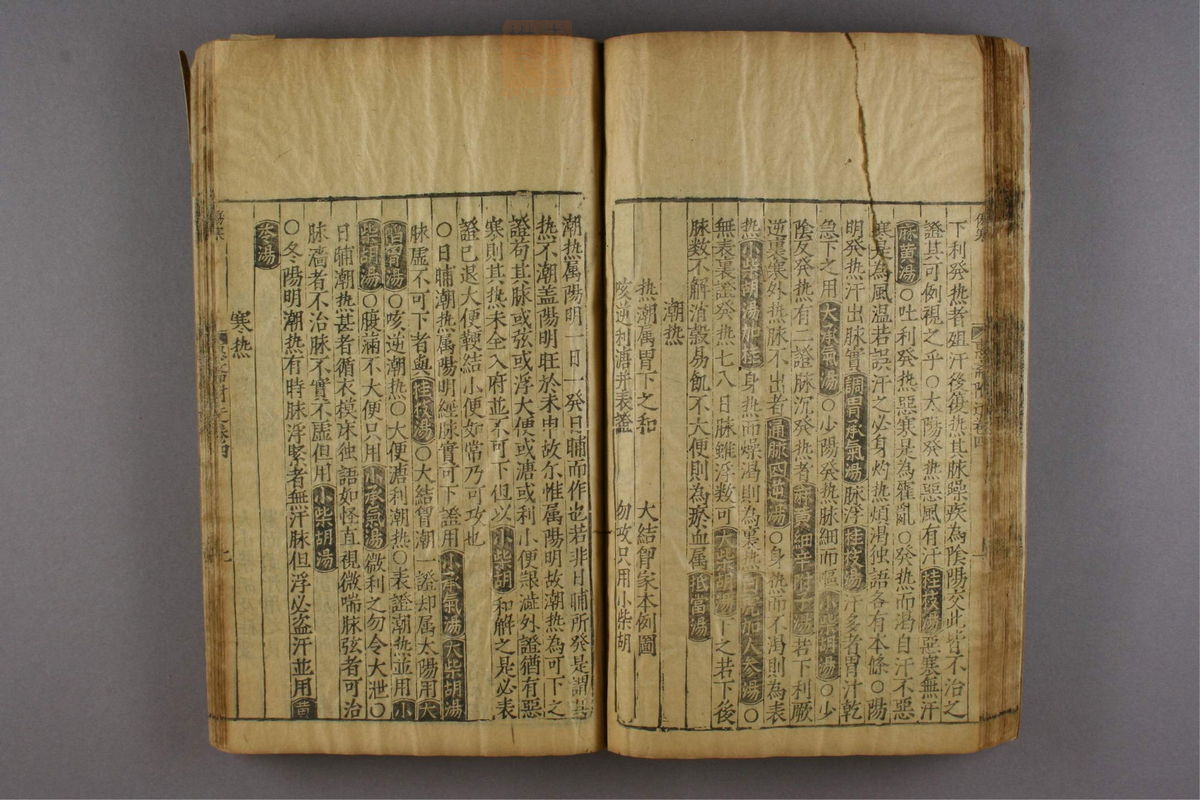 下利發热者姐汗後復热其脉躁疾為陰陽交此皆不治之
證其可例視之乎○太陽發热惡風有汗桂枝湯惡寒無汗
麻黄湯○吐利發热惡寒是為霍亂○發热而渴自汗不惡
寒是為風温若誤汗之必身灼热煩渴独語各有本條○陽
明發热汗出脉實調胃承氣湯脉浮桂枝湯汗多者胃汗乾
急下之用大承氣湯○少陽發热脉細而嘔小柴胡湯○少
陰久發热有二證脉沉發热者麻黄細辛附子湯若下利厥
逆裏寒外热脉不出者通脉四逆湯○身热而不渴則為表
热小柴胡湯加桂身热而燥渴則為裏热白虎加人参湯○
無表裏證發热七八日脉雖浮数可大柴胡湯下之若下後
脉数不解消穀易飢不大便則為瘀血属抵當湯
潮热
热潮属胃下之和 大結胷家本例圖
咳逆利溏并表證 勿攻只用小柴胡
潮热属陽明一日一發日晡而作也若非日晡所發是謂
热不潮盖陽明旺於未申故尔惟属陽明故潮热為可下之
證苟其脉或弦或浮大便或溏或利小便艱澁外證猶有惡
寒則其热未全入府並不可下但以小柴胡和解之是必表
證已退大便鞕結小便如常乃可攻也
○日晡潮热属陽明經脉實可下證用小承氣湯大柴胡湯
脉虛不可下者與桂枝湯○大結胷潮一證却属太陽用大
陷胷湯○咳逆潮热○大便溏利潮热○表證潮热並用小
柴胡湯○腹滿不大便只用小承氣湯微利之勿令大泄○
日晡潮热甚者循衣模床独語如怪直視微喘脉弦者可治
脉濇者不治脉不實不虛但用小柴胡湯
○冬陽明潮热有時脉浮緊者無汗脉但浮必盗汗並用黄
芩湯
寒热